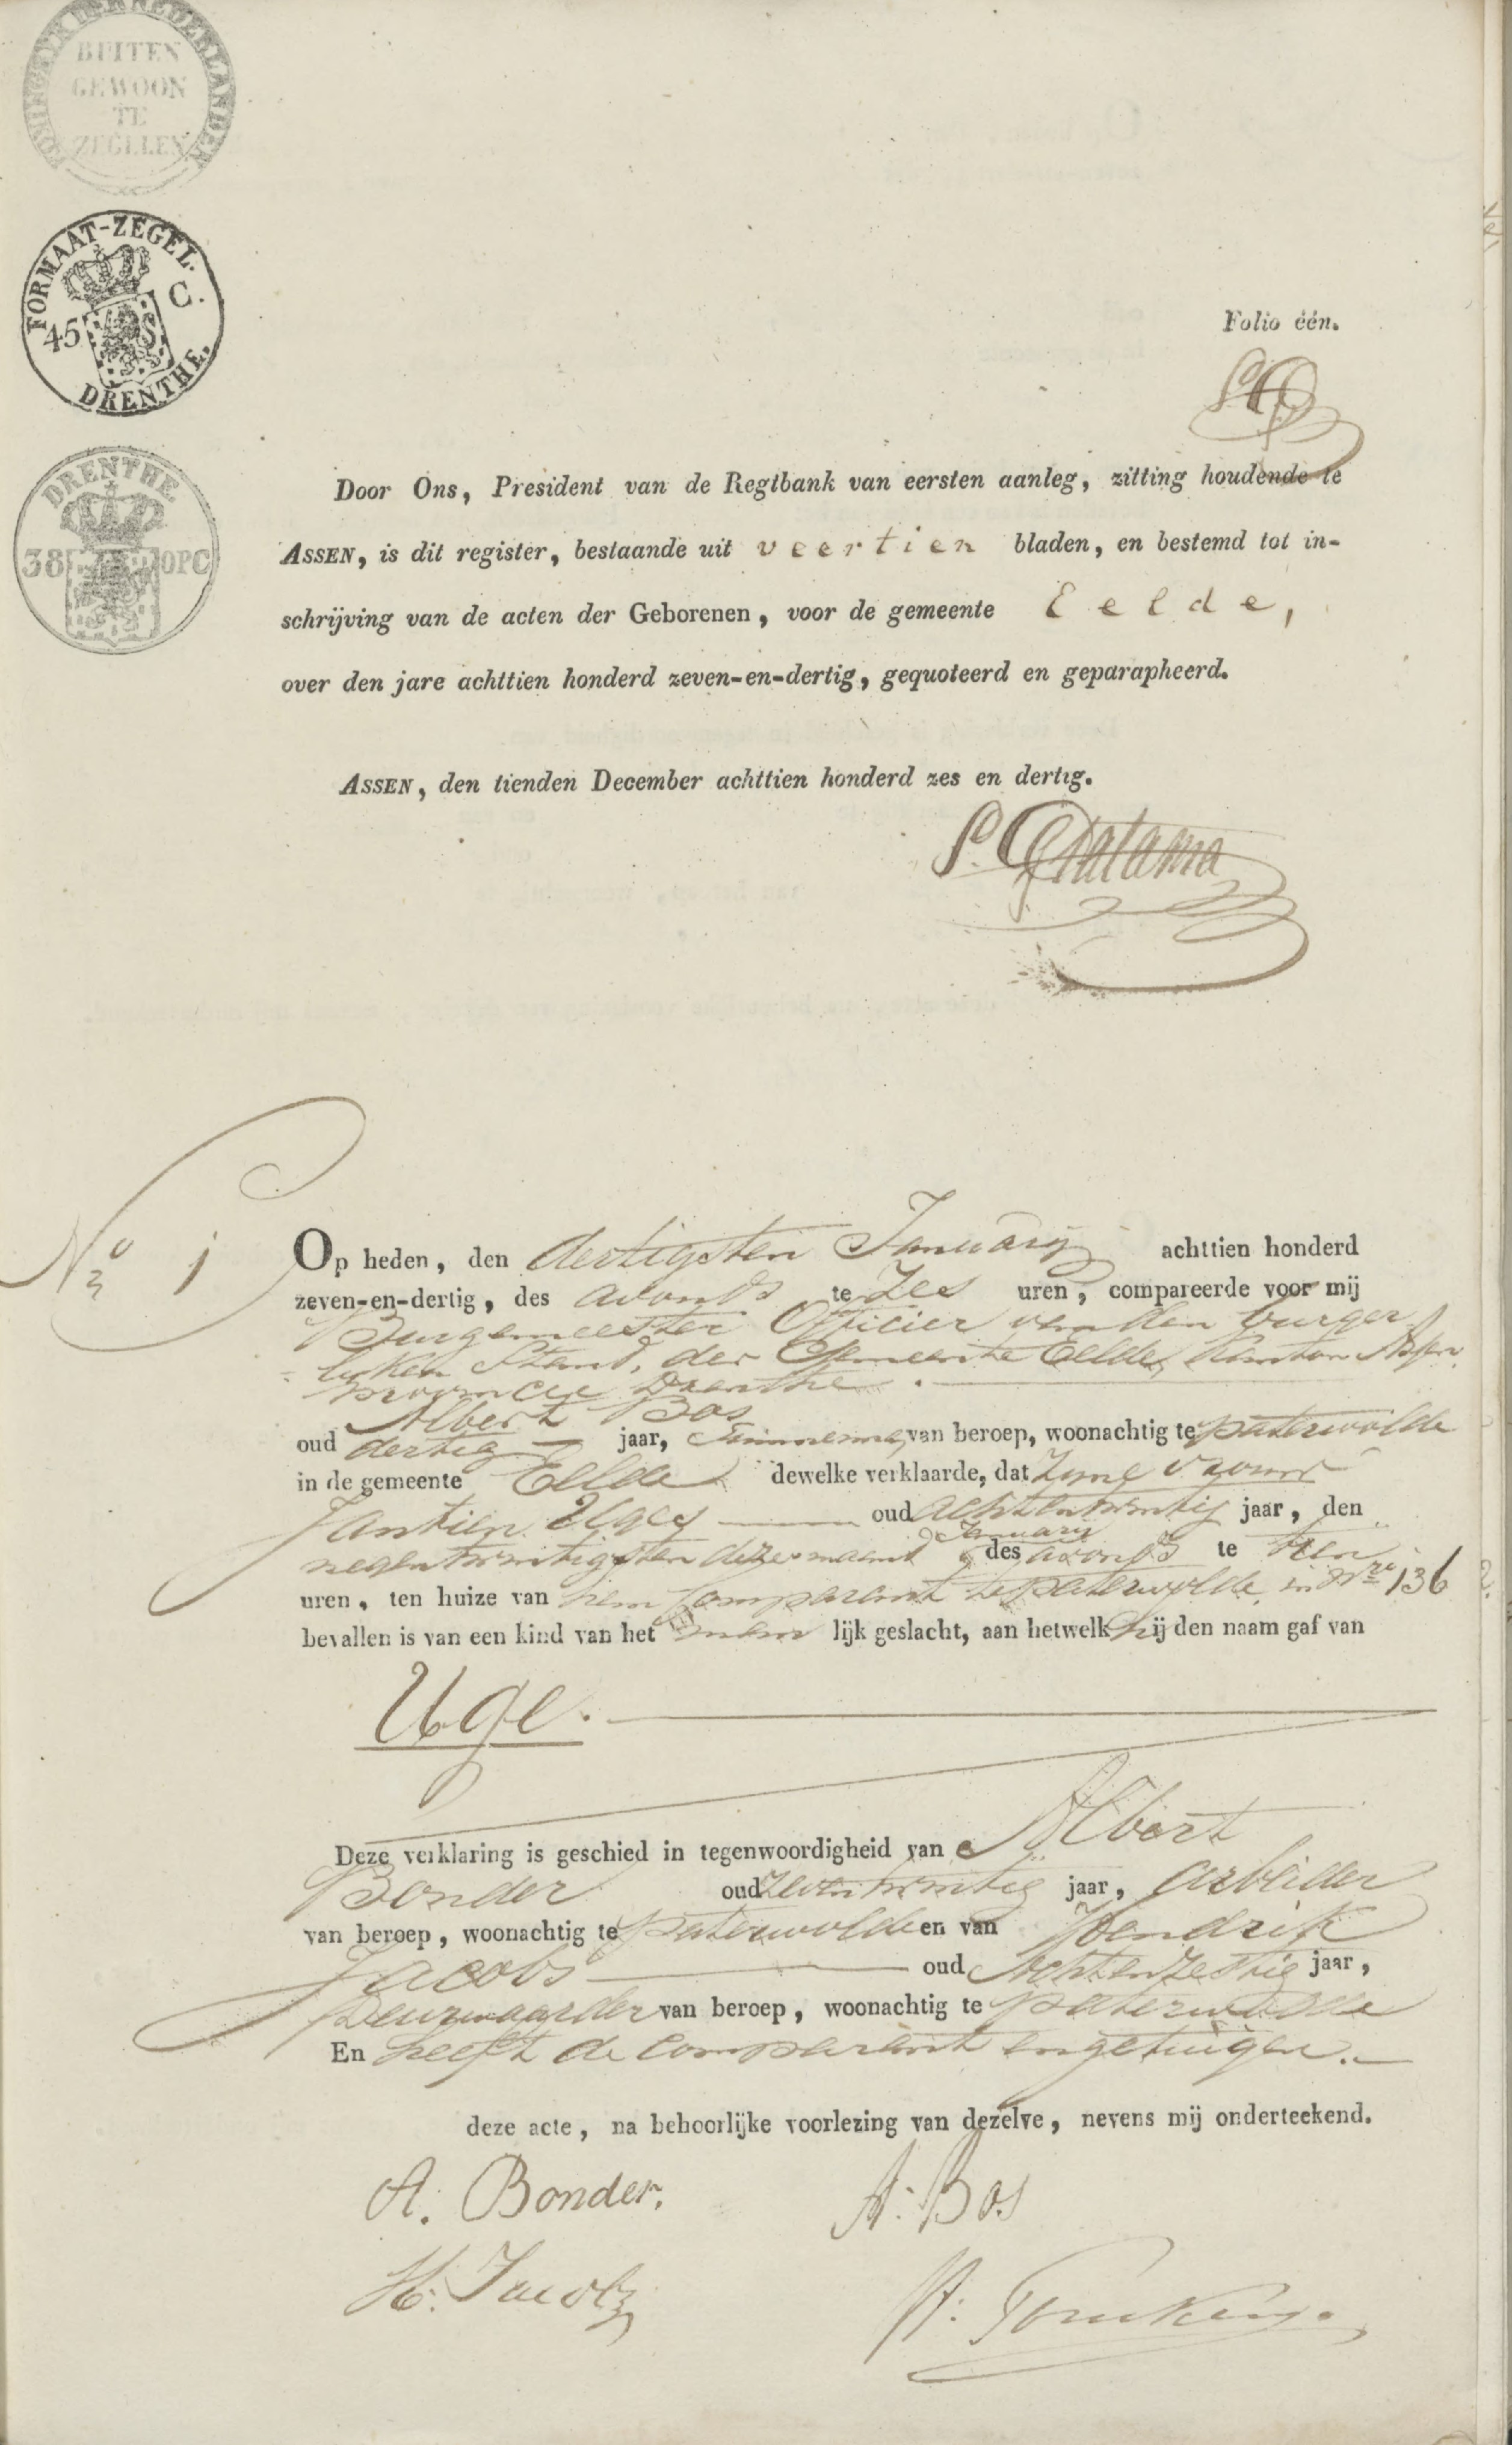 KONINGRYK DER NEDERLANDEN
BUITEN
GEWOON
TE
ZEGELEN
FORMAAT-ZEGEL.
45 C.
DRENTHE.
DRENTHE
38 OPC
Folio één.
Door Ons, President van de Regtbank van eersten aanleg, zitting houdende te
ASSEN, is dit register, bestaande uit veertien bladen, en bestemd tot in-
schrijving van de acten der Geborenen, voor de gemeente Eelde,
over den jare achttien honderd zeven-en-dertig, gequoteerd en geparapheerd.
ASSEN, den tienden December achttien honderd zes en dertig.
No 1
Op heden, den dertigsten January achttien honderd
zeven-en-dertig, des avonds te zes uren, compareerde voor mij
Burgemeester Officier van den burger
lyken Stand, der Gemeente Eelde, Kanton Assen
provincie Drenthe.
Albert Bos
oud dertig jaar, van beroep, woonachtig te paterwolde
in de gemeente Eelde dewelke verklaarde, dat zyne vrouw
Jantien Uges oud achtentwintig jaar, den
negentwintigsten dezer maand January des avonds te tien
uren, ten huize van hem Comparant te paterwolde, in 136
bevallen is van een kind van het man lijk geslacht, aan hetwelk hij den naam gaf van
Uge.
Deze verklaring is geschied in tegenwoordigheid van Albert
Bonder oud zeventwintig jaar, arbeider
van beroep, woonachtig te paterwolde en van Hendrik
Jacobs oud achtenzestig jaar,
Deurwaarder van beroep, woonachtig te paterwolde
En heeft de comparant en getuigen.
deze acte, na behoorlijke voorlezing van dezelve, nevens mij onderteekend.
A. Bonder. A: Bos
H. Jacobs